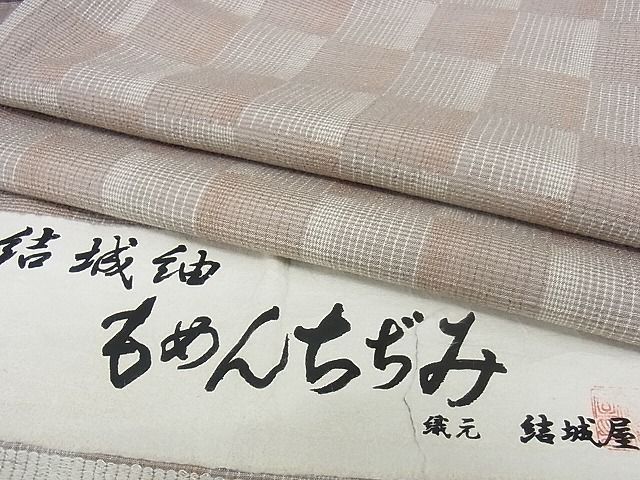 結城紬
もめんちぢみ
織元 結城屋